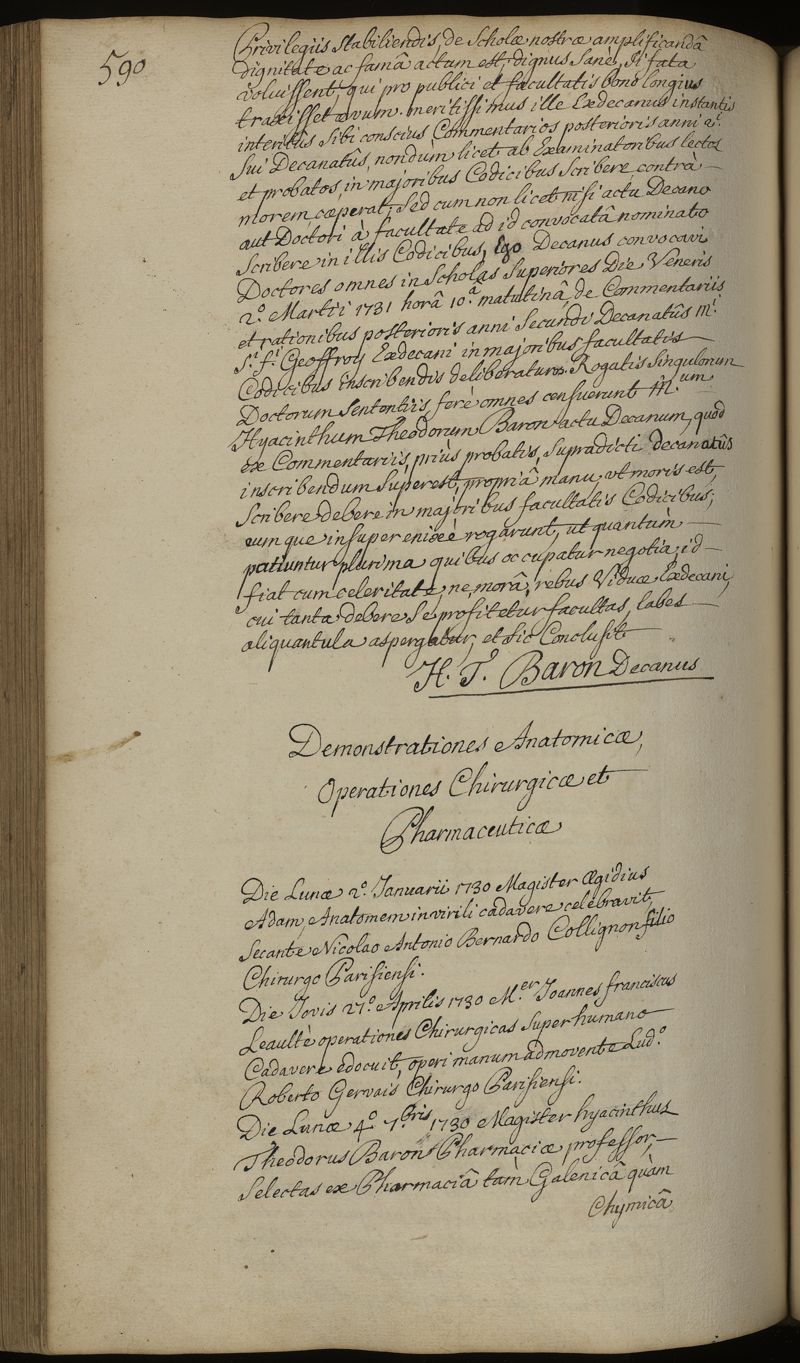 590
Privilegiis stabiliendis, de Scholæ nostræ amplificandâ
dignitate ac famâ actum est, dignus Sanè, si fata
voluissent, qui pro publici et facultatis bono longius
traxisset ævum. meritissimus ille Exdecanus instantis
interitûs Sibi conscius Commentarios posterioris anni 2i.
Sui Decanatûs, nondùm licet ab Examinatoribus lectos
et probatos, in majoribus Codicibus Scribere, contrà
morem, cæperat; Sed cum non licet nisi actu Decano
aut Doctori à facultate ad id convocatâ nominato
Scribere in illis Codicibus, Ego Decanus convocavi
Doctores omnes in Scholas Superiores Die Veneris
2.° Martii 1731 horâ 10.ª matutinâ, de Commentariis
et rationibus posterioris anni Secundi Decanatûs M.i
S.i f.i Geoffroy Exdecani in majoribus facultatis
Codicibus inscribendis deliberaturos. Rogatis Singulorum
Doctorum Sententiis, ferè omnes censuerunt M.um
Hyacinthum Theodorum Baron actu Decanum, quod
ex Commentariis, priùs probatis, supradicti decanatûs
inscribendum superest, propriâ manu, ut moris est,
Scribere debere in majoribus facultatis Codicibus;
eumque insuper enixè rogarunt, ut quantùm
patiuntur plurima quibus occupatur negotia, id
fiat cum celeritate, ne morâ, rebus Viduæ Exdecani,
cui tanta debere Se profitetur facultas, labes
aliquantula aspergatur, et sic Conclusit
H. T. Baron Decanus
Demonstrationes Anatomicæ,
Operationes Chirurgicæ et
Pharmaceuticæ
Die Lunæ 2.° Januarii 1730 Magister Ægidius
Adam, Anatomem in virili cadavere celebravit,
Secante Nicolao Antonio Bernardo Collignon filio
Chirurgo Parisiensi.
Die Jovis 27.° Aprilis 1730 M.er Joannes franciscus
Leaulté operationes Chirurgicas Super humano
Cadavere edocuit, operi manum admovente Lud.°
Roberto Gervais Chirurgo Parisiensi.
Die Lunæ 4.° 7.bris 1730 Magister hyacinthus
Theodorus Baron Pharmaciæ professor,
Selectas ex Pharmaciâ tàm Galenicâ quàm
Chymicâ